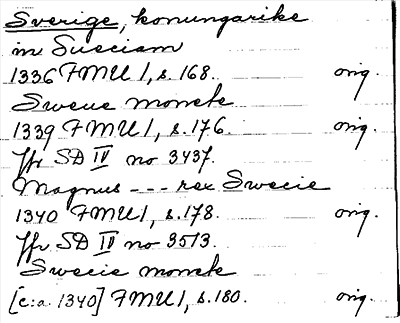 Sverige, konungarike
in Sueciam
1336 FMU I, s. 168. orig.
Swecie monete
1339 FMU I, s. 176. orig.
Jfr SD IV no 3437.
Magnus --- rex Swecie
1340 FMU I, s. 178. orig.
Jfr SD IV no 3513.
Swecie monete
[c:a 1340] FMU I, s. 180. orig.